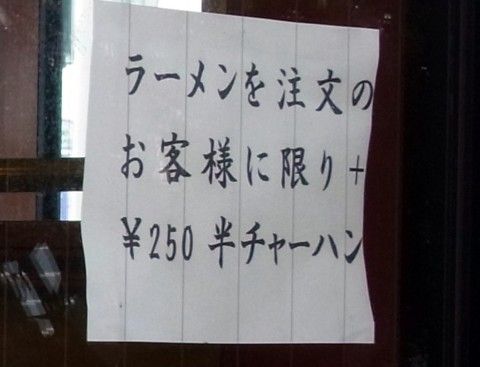 ラーメンを注文の
お客様に限り+
¥250 半チャーハン